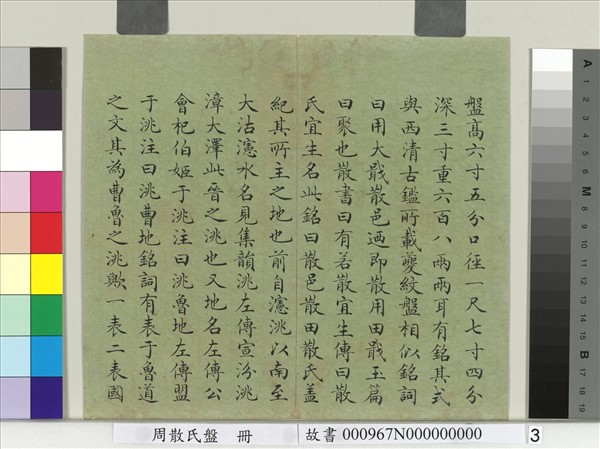 盤高六寸五分口徑一尺七寸四分
深三寸重六百八兩兩耳有銘其式
與西清古鑑所載夔紋盤相似銘詞
曰用大戢散邑迺即散用田戢玉篇
曰聚也散書曰有若散宜生傳曰散
氏宜生名此銘曰散邑散田散氏蓋
紀其所主之地也前自瀗洮以南至
大沽瀗水名見集韻洮左傳宣汾洮
漳大澤此晉之洮也又地名左傳公
會杞伯姬于洮注曰洮魯地左傳盟
于洮注曰洮曹地銘詞有表于魯道
之文其為曹魯之洮歟一表二表國
A 1 2 3 4 5 6 M 8 9 10 11 12 13 14 15 B 17 18 19
周散氏盤 冊 故書 000967N000000000 3